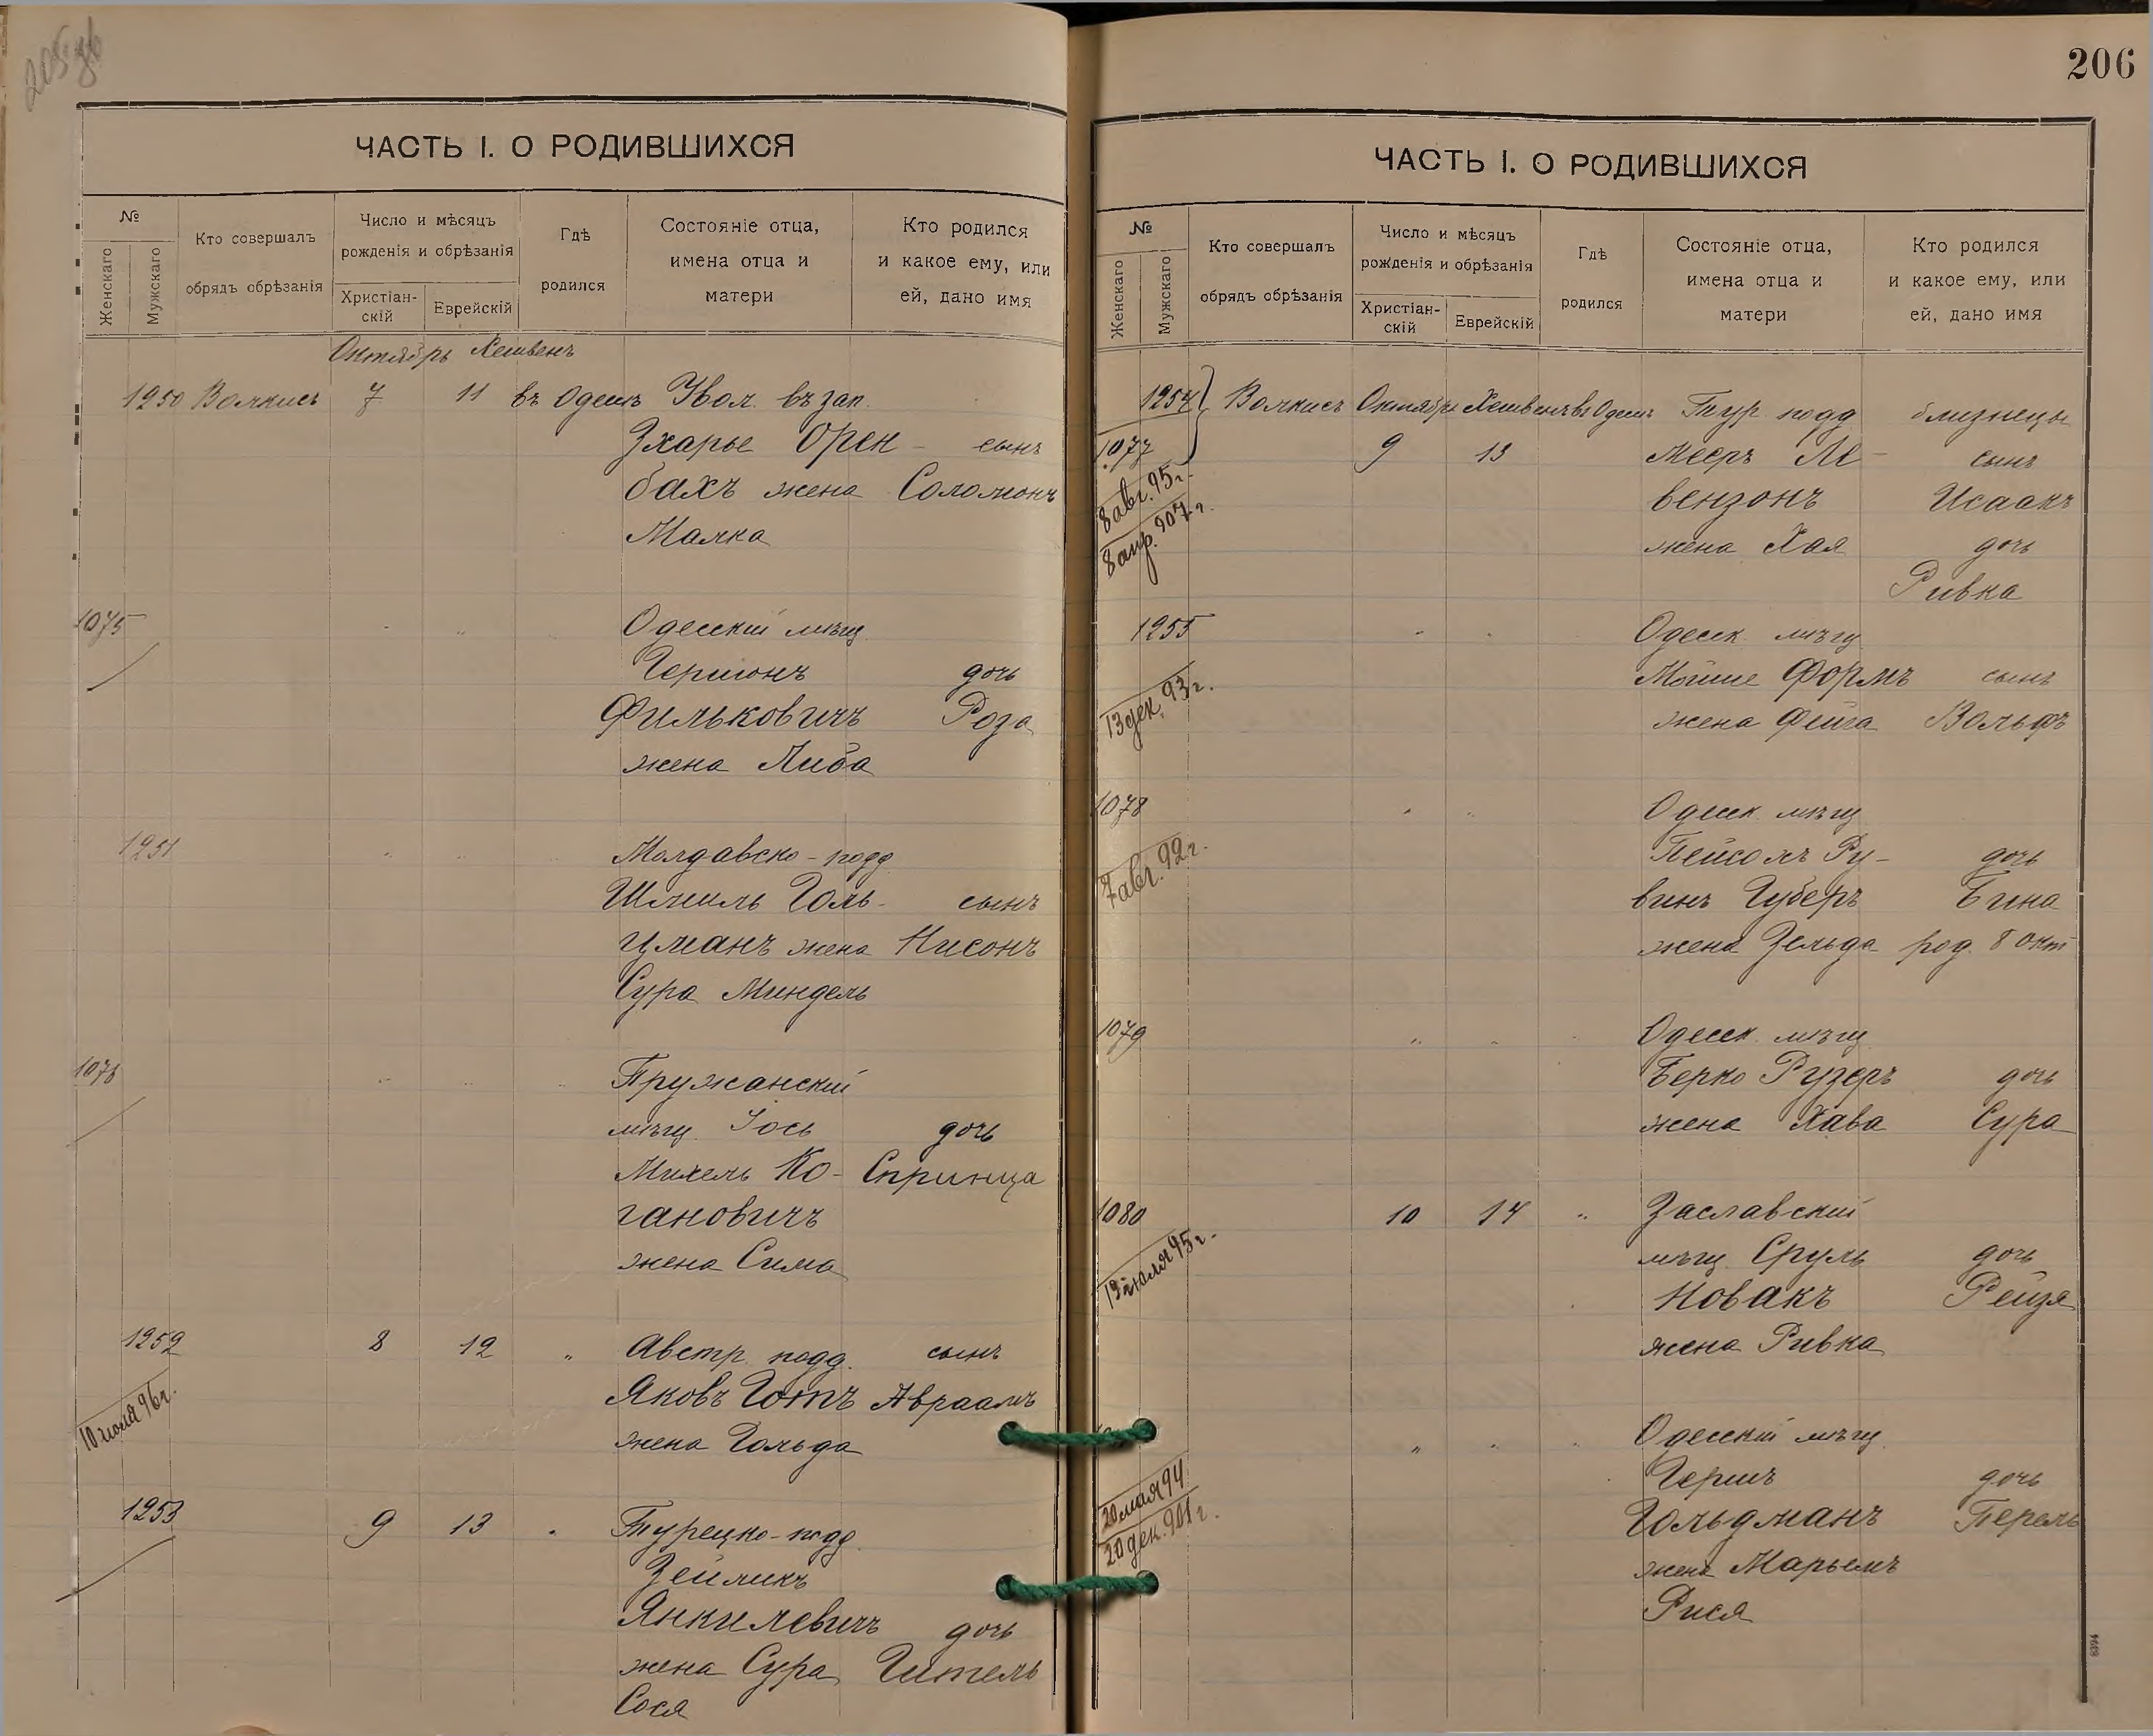 205 об
ЧАСТЬ I. О РОДИВШИХСЯ
№
Женскаго
Мужскаго
Кто совершалъ
обрядъ обрѣзанія
Число и мѣсяцъ
рожденія и обрѣзанія
Христіан-
скій
Еврейскій
Гдѣ
родился
Состояніе отца,
имена отца и
матери
Кто родился
и какое ему, или
ей, дано имя
Октябрь Хешвенъ
1250 Волкисъ 7 11 въ Одессѣ Увол. въ зап.
Зхарье Орен- сынъ
бахъ жена Соломонъ
Малка
1075 Одесскій мѣщ.
Гершонъ дочь
Фильковичъ Роза
жена Либа
1251 Молдавско-подд.
Шмиль Голь- сынъ
цманъ жена Нисонъ
Сура Миндель
1076 Пружанскій
мѣщ. Іось дочь
Михель Ко- Спринца
гановичъ
жена Сима
1252 8 12 " Австр. подд. сынъ
Яковъ Готъ Авраамъ
10 июля 96 г. жена Гольда
1253 9 13 " Турецко-подд.
Зейликъ
Янкилевичъ дочь
жена Сура Гитель
Сося
206
ЧАСТЬ I. О РОДИВШИХСЯ
№
Женскаго
Мужскаго
Кто совершалъ
обрядъ обрѣзанія
Число и мѣсяцъ
рожденія и обрѣзанія
Христіан-
скій
Еврейскій
Гдѣ
родился
Состояніе отца,
имена отца и
матери
Кто родился
и какое ему, или
ей, дано имя
1254 Волкисъ Октябрь Хешвенъ въ Одессѣ Тур. подд. близнецы
1077 9 13 Мееръ Ле- сынъ
8 авг. 95 г. вензонъ Исаакъ
8 апр. 907 г. жена Хая дочь
Ривка
1255 " " Одесск. мѣщ.
Мойше Формъ сынъ
13 дек. 93 г. жена Фейга Вольфъ
1078 " " Одесск. мѣщ.
7 авг. 92 г. Пейсахъ Ру- дочь
винъ Губеръ Бина
жена Зельда род. 8 окт
1079 " " Одесск. мѣщ.
Берко Рузеръ дочь
жена Хава Сура
1080 10 14 " Заславскій
мѣщ. Сруль дочь
13 июля 95 г. Новакъ Рейзя
жена Ривка
" " " Одесскій мѣщ.
Гершъ дочь
20 мая 94 Гольдманъ Перель
20 дек. 901 г. жена Марьемъ
Рися
8394